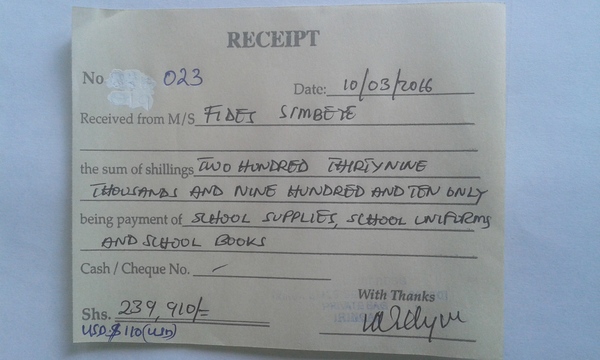 RECEIPT
No 023
Date: 10/03/2016
Received from M/S FIDES SIMBEYE
the sum of shillings TWO HUNDRED THIRTYNINE
THOUSANDS AND NINE HUNDRED AND TEN ONLY
being payment of SCHOOL SUPPLIES, SCHOOL UNIFORMS
AND SCHOOL BOOKS
Cash / Cheque No. -
With Thanks
Shs. 239,910/=
USD $110 (USD)